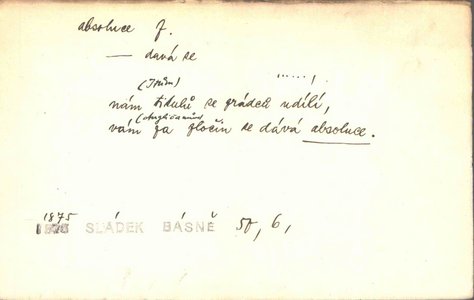 absoluce f.
— dává se
(Irům)
nám titulů se zrádců udílí,
(Angličanům)
vám za zločin se dává absoluce.
1875
SLÁDEK BÁSNĚ 50, 6,